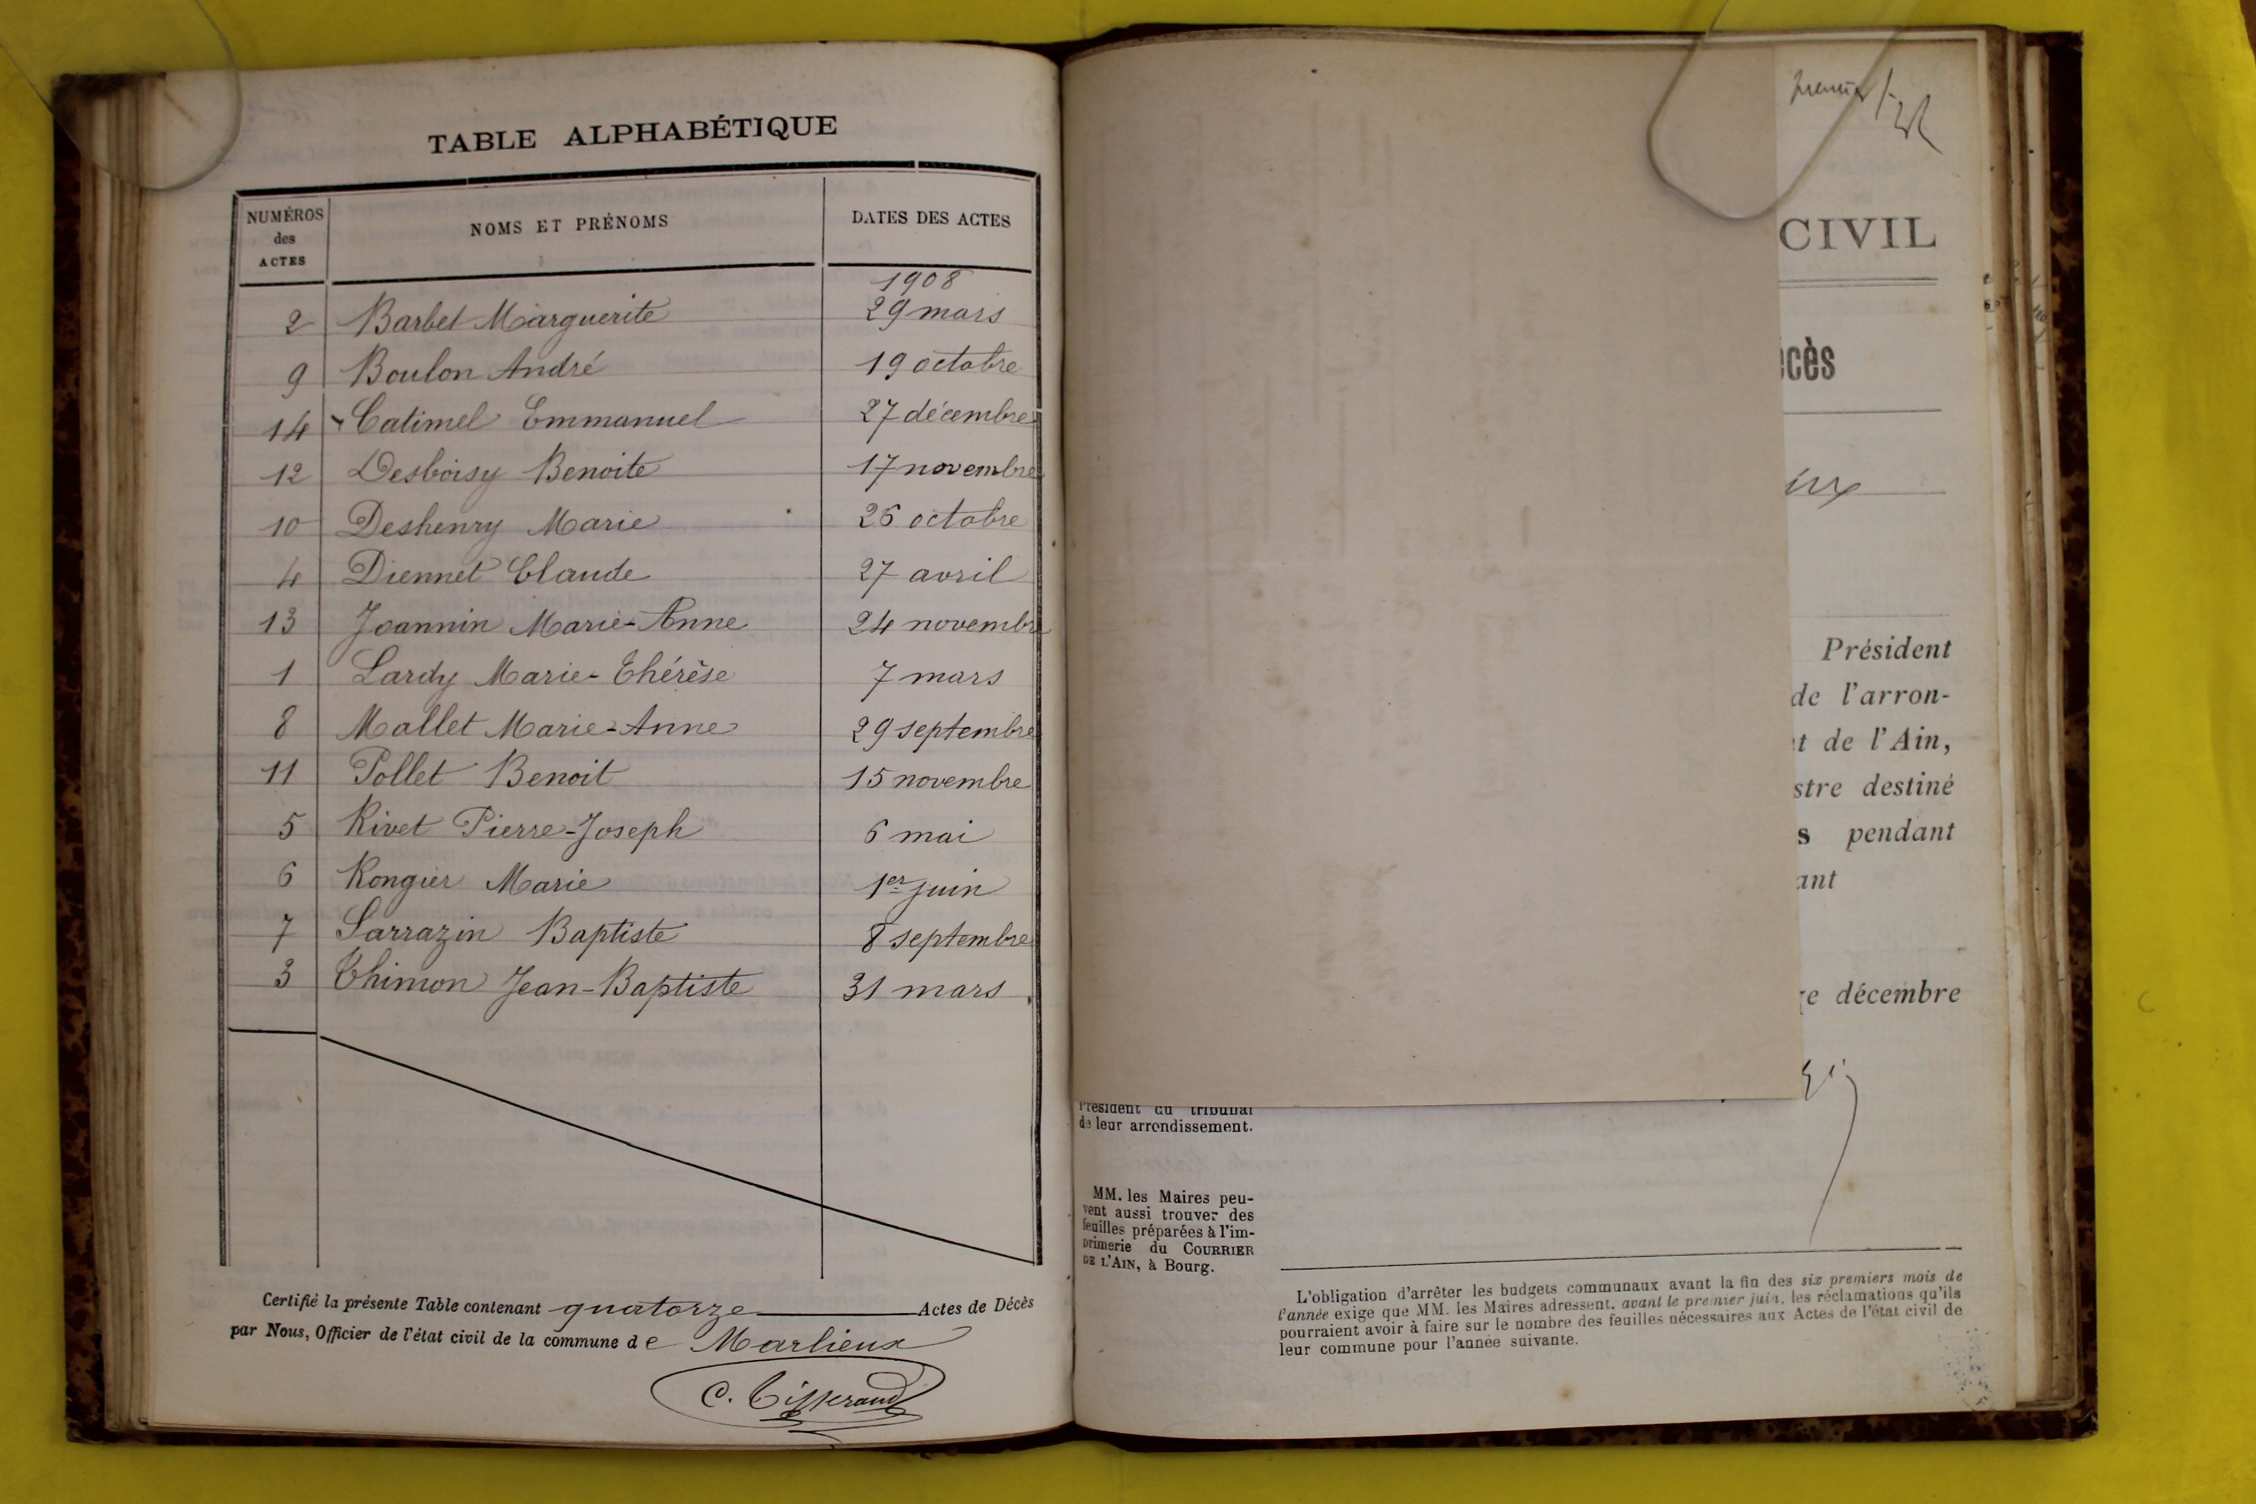 TABLE ALPHABÉTIQUE
NUMÉROS des ACTES NOMS ET PRÉNOMS DATES DES ACTES
1908
2 Barbet Marguerite 29 mars
9 Boulon André 19 octobre
14 Catimel Emmanuel 27 décembre
12 Desboisy Benoite 17 novembre
10 Deshenry Marie 26 octobre
4 Diennet Claude 27 avril
13 Joannin Marie-Anne 24 novembre
1 Lardy Marie-Thérèse 7 mars
8 Mallet Marie-Anne 29 septembre
11 Pollet Benoit 15 novembre
5 Rivet Pierre-Joseph 6 mai
6 Rongier Marie 1er juin
7 Sarrazin Baptiste 8 septembre
3 Thimon Jean-Baptiste 31 mars
Certifié la présente Table contenant quatorze Actes de Décès
par Nous, Officier de l'état civil de la commune de Marlieux
C. Tisserand
premier
CIVIL
cès
Président
de l'arron-
t de l'Ain,
stre destiné
s pendant
ant
re décembre
Président du tribunal
de leur arrondissement.
MM. les Maires peu-
vent aussi trouver des
feuilles préparées à l'im-
primerie du COURRIER
DE L'AIN, à Bourg.
L'obligation d'arrêter les budgets communaux avant la fin des six premiers mois de
l'année exige que MM. les Maires adressent, avant le premier juin, les réclamations qu'ils
pourraient avoir à faire sur le nombre des feuilles nécessaires aux Actes de l'état civil de
leur commune pour l'année suivante.